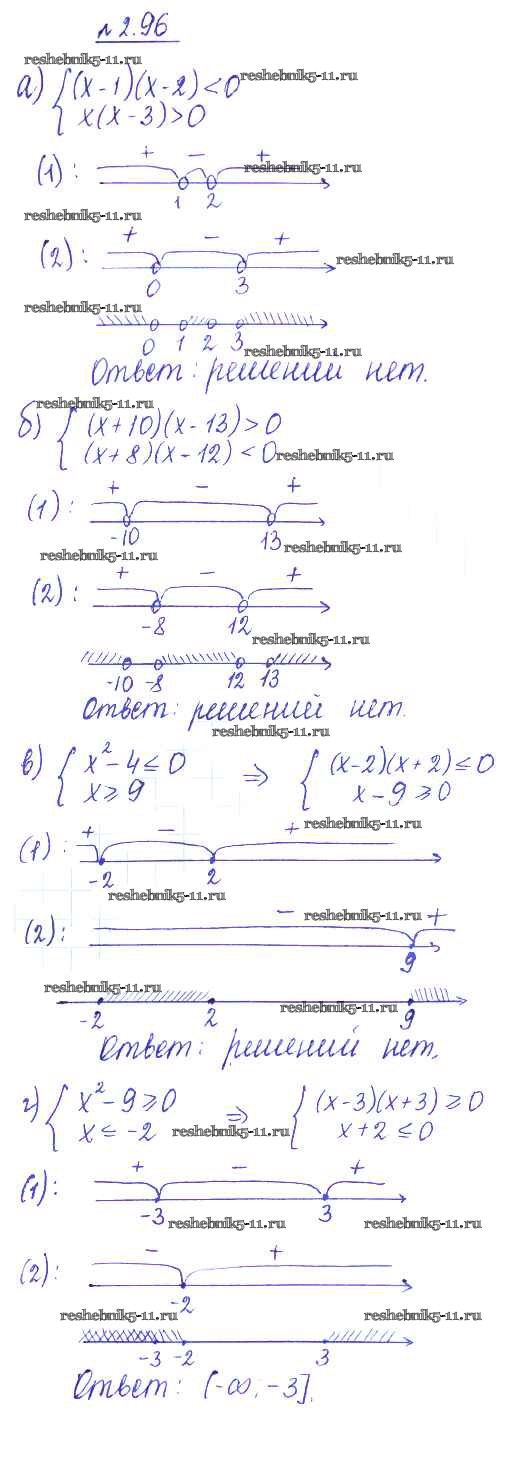 № 2.96
reshebnik5-11.ru
а) { (x-1)(x-2)<0 reshebnik5-11.ru
x(x-3)>0
reshebnik5-11.ru
(1): + - + reshebnik5-11.ru
1 2
reshebnik5-11.ru
(2): + - + reshebnik5-11.ru
0 3
reshebnik5-11.ru
0 1 2 3 reshebnik5-11.ru
Ответ: решений нет.
reshebnik5-11.ru
б) { (x+10)(x-13)>0
(x+8)(x-12)<0 reshebnik5-11.ru
(1): + - +
-10 13 reshebnik5-11.ru
reshebnik5-11.ru
(2): + - +
-8 12
reshebnik5-11.ru
-10 -8 12 13
Ответ: решений нет.
reshebnik5-11.ru
в) { x²-4≤0 ⇒ { (x-2)(x+2)≤0
x≥9 x-9≥0
reshebnik5-11.ru
(1): + - +
-2 2
reshebnik5-11.ru
(2): - reshebnik5-11.ru +
9
reshebnik5-11.ru
reshebnik5-11.ru
-2 2 9
Ответ: решений нет.
г) { x²-9≥0 ⇒ { (x-3)(x+3)≥0
x≤-2 reshebnik5-11.ru x+2≤0
(1): + - +
-3 reshebnik5-11.ru 3 reshebnik5-11.ru
(2): - +
-2
reshebnik5-11.ru reshebnik5-11.ru
-3 -2 3
Ответ: (-∞; -3].